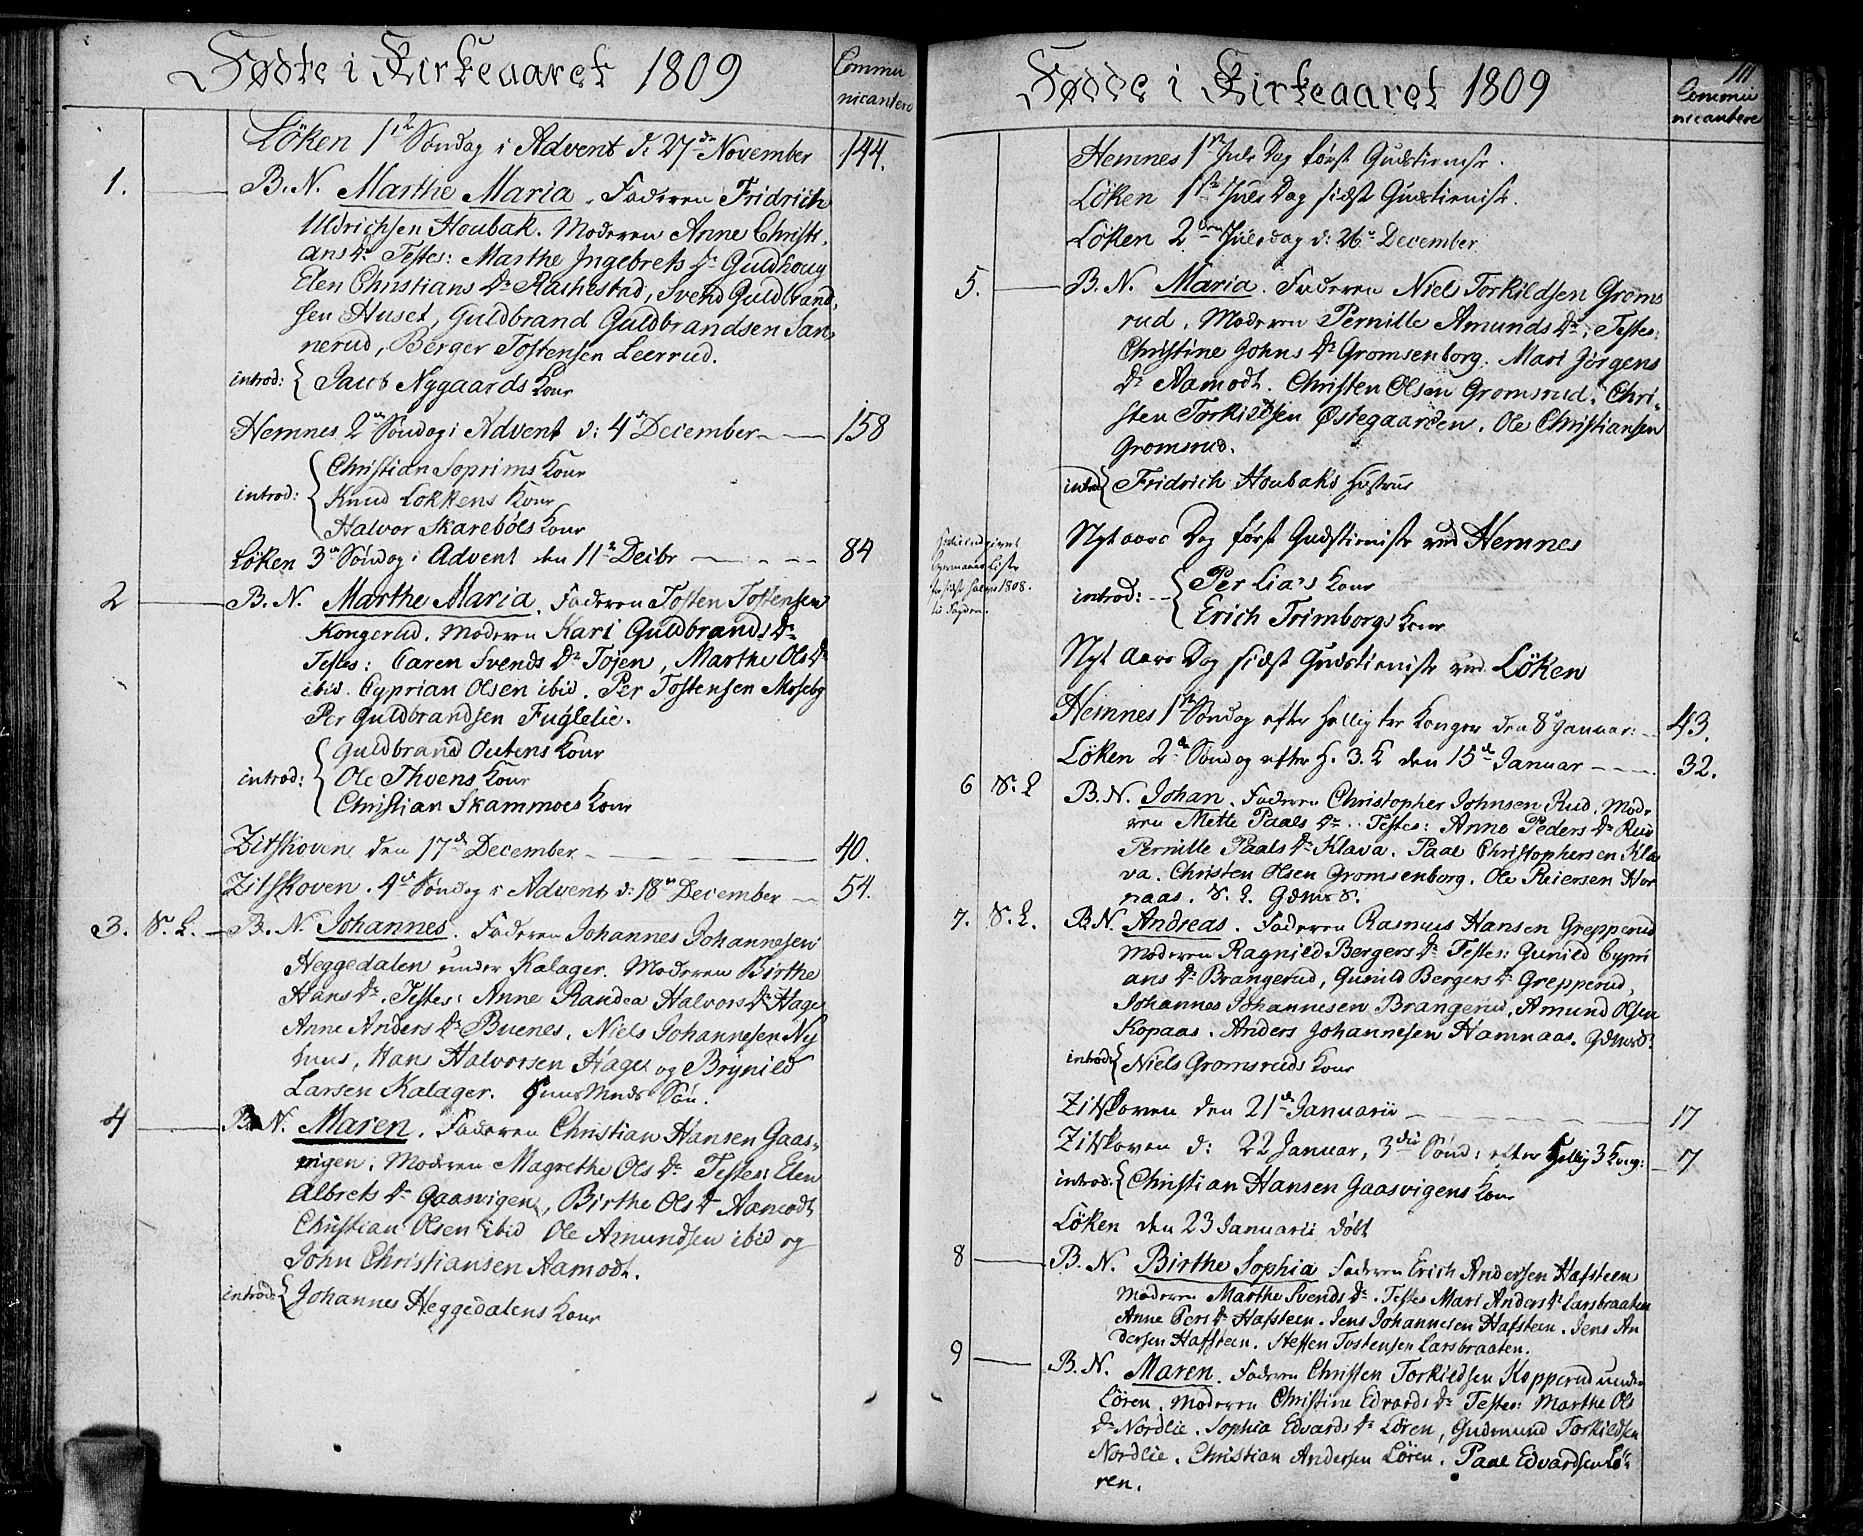 Fødte i Kirkeaaret 1809
Commu
nicantere
Löken 1ste Søndag i Advent d: 27de November 144.
1. B. N. Marthe Maria. Faderen Fridrich
Uldrichsen Houbak. Moderen Anne Christi
ans Dr Testes: Marthe Ingebrets Dr Guldhoug
Elen Christians Dr Rakkestad, Svend Guldbrand
sen Huset, Guldbrand Guldbrandsen San
nerud, Berger Tostensen Leerrud.
introd: Jacob Nygaards Kone
Hemnes 2den Søndag i Advent d: 4de December 158
introd: Christian Soprims Kone
Knud Lokkens Kone
Halvor Skarebøls Kone
Löken 3de Søndag i Advent den 11te Decibr 84
2 B. N. Marthe Maria. Faderen Tosten Tostensen
Kongerud. Moderen Kari Guldbrands Dr
Testes: Caren Svends Dr Tojen, Marthe Ols Dr
ibid. Cyprian Olsen ibid. Per Tostensen Moseby
Per Guldbrandsen Fuglelie.
introd: Guldbrand Outens Kone
Ole Thvens Kone
Christian Skammoes Kone
Zitskoven den 17de December 40.
Zitskoven. 4de Søndag i Advent d: 18de December 54.
3. S. L. B. N. Johannes. Faderen Johannes Johannesen
Heggedalen under Kalager. Moderen Birthe
Hans Dr. Testes: Anne Randea Halvors Dr Hage
Anne Anders Dr Buenes, Niels Johannesen Ny
huus, Hans Halvorsen Hage og Brynild
Larsen Kalager. Søn.
4 B. N. Maren. Faderen Christian Hansen Gaas-
vigen. Moderen Magrethe Ols Dr Testes: Elen
Albrets Dr Gaasvigen, Birthe Ols Dr Aamodt
Christian Olsen ibid Ole Amundsen ibid og
John Christiansen Aamodt.
introd: Johannes Heggedalens Kone
111
Fødde i Kirkeaaret 1809
Commu
nicantere
Hemnes 1ste Jule Dag først Gudstieniste.
Löken 1ste Jule Dag sidst Gudstieniste.
Löken 2den Juledag d: 26de December
5. B. N. Maria. Faderen Niels Torkildsen Groms
rud. Moderen Pernille Amunds Dr. Testes:
Christine Johns Dr Gromsenborg. Mari Jörgens
Dr Aamodt. Christen Olsen Gromsrud. Chri-
sten Torkildsen Østegaarden. Ole Christiansen
Gromsrud.
introd Fridrich Houbaks Hustrue
Nyt aars Dag først Gudstieniste ved Hemnes
Liste
1808.
introd: Per Lia's Kone
Erich Trimborgs Kone
Nyt Aars Dag sidst Gudstieniste ved Löken
Hemnes 1ste Søndag efter Hellig tre Konger den 8de Januar: 43.
Löken 2de Søndag efter H. 3. K den 15de Januar 32.
6 S. L B. N. Johan. Faderen Christopher Johnsen Rud. Mode
ren Mette Paals Dr. Testes: Anne Peders Dr Rud
Pernille Paals Dr Klava. Paal Christophersen Kla
va. Christen Olsen Gromsenborg. Ole Reiersen Hor
naas. S. L.
7. S. L. B. N. Andreas. Faderen Rasmus Hansen Grepperud
Moderen Ragnild Bergers Dr Testes: Gunild Cypri
ans Dr Brangerud, Gunild Bergers Dr Grepperud,
Johannes Johannesen Brangerud, Amund Olsen
Kopaas. Anders Johannesen Hamnaas.
introd: Niels Gromsruds Kone
Zitskoven den 21de Januarii 17
Zitskoven d: 22 Januar, 3die Sønd: efter Hellig 3 Kong: 7
introd: Christian Hansen Gaasvigens Kone
Löken den 23 Januarii døbt
8 B. N. Birthe Sophia Faderen Erich Andersen Hafsteen
Moderen Marthe Svends Dr. Testes Mari Anders Dr Larsbraaten
Anne Pers Dr Hafsteen. Jens Johannesen Hafsteen. Jens An
dersen Hafsteen. Steffen Tostensen Larsbraaten.
9 B. N. Maren. Faderen Christen Torkildsen Kopperud under
Lören. Moderen Christine Edvards Dr Testes: Marthe Ols
Dr Nordlie. Sophia Edvards Dr Lören, Gudmund Torkildsen
Nordlie. Christian Andersen Lören. Paal Edvardsen Lö-
ren.